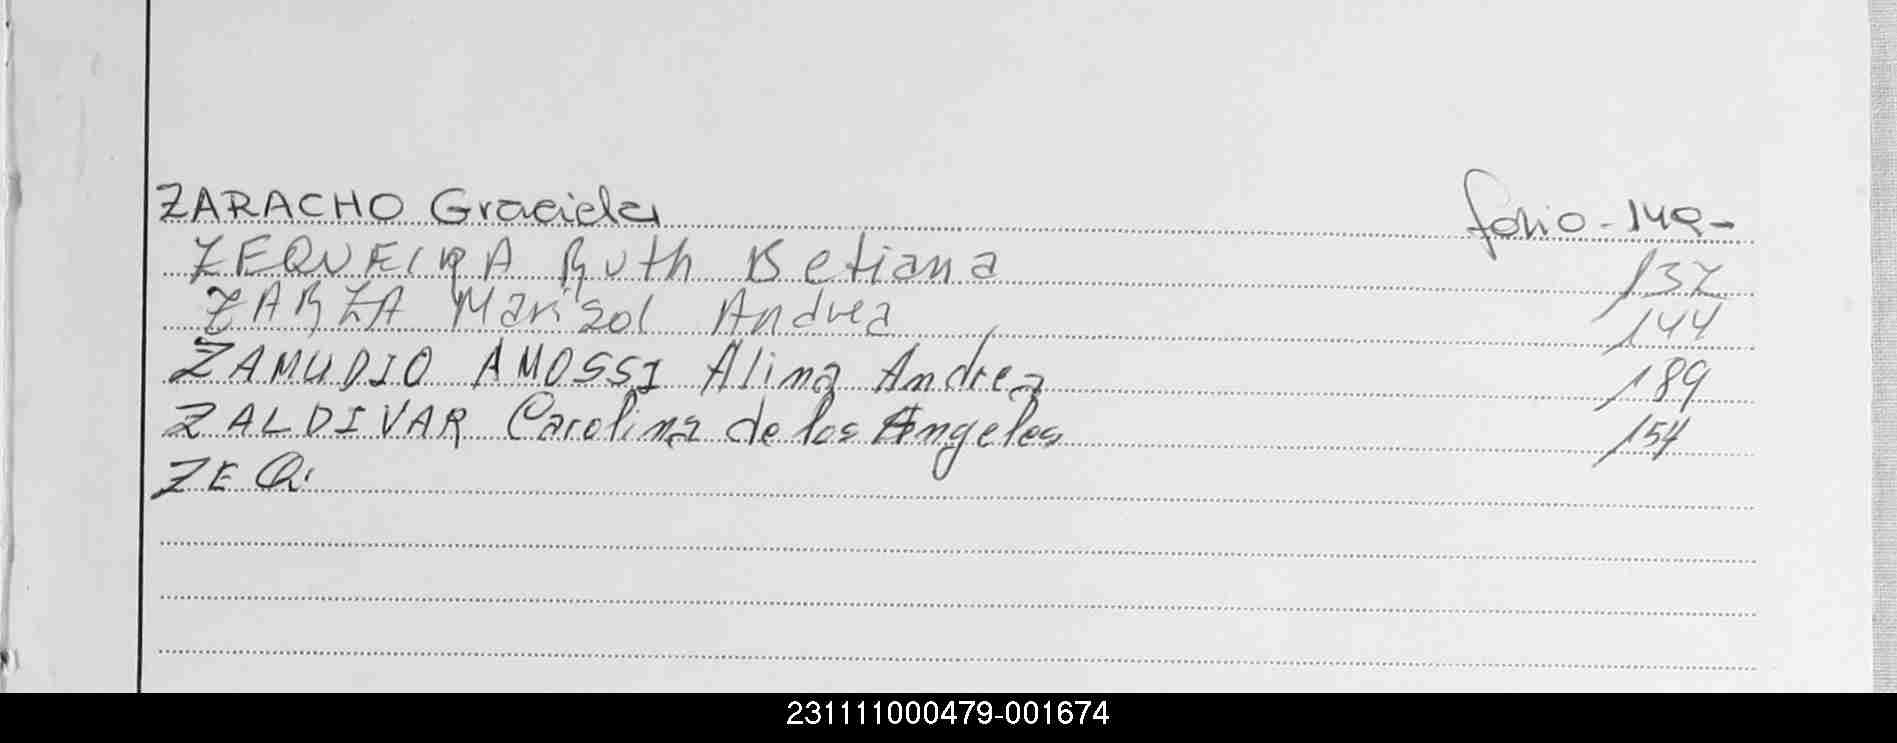 ZARACHO Graciela folio - 149 -
ZEQUEIRA Ruth Betiana 137
ZARZA Marisol Andrea 144
ZAMUDIO AMOSSI Alina Andrea 189
ZALDIVAR Carolina de los Angeles 154
ZEQ
231111000479-001674